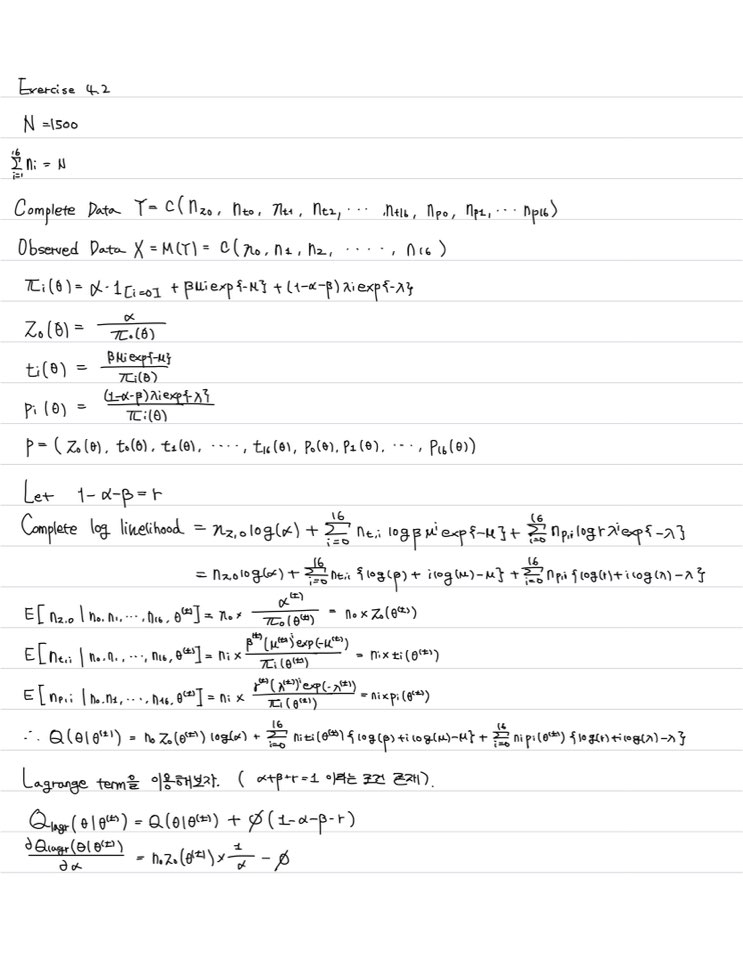 Exercise 4.2
N = 1500
∑_{i=1}^{16} n_i = N
Complete Data Y = C(n_{z0}, n_{t0}, n_{t1}, n_{t2}, ⋯ , n_{t16}, n_{p0}, n_{p1}, ⋯ n_{p16})
Observed Data X = M(Y) = C(n_0, n_1, n_2, ⋯⋯, n_{16})
π_i(θ) = α·1_{[i=0]} + βμ^i exp{-μ} + (1-α-β)λ^i exp{-λ}
z_0(θ) = α / π_0(θ)
t_i(θ) = βμ^i exp{-μ} / π_i(θ)
p_i(θ) = (1-α-β)λ^i exp{-λ} / π_i(θ)
p = (z_0(θ), t_0(θ), t_1(θ), ⋯⋯, t_{16}(θ), p_0(θ), p_1(θ), ⋯, p_{16}(θ))
Let 1-α-β = r
Complete log linelihood = n_{z,0} log(α) + ∑_{i=0}^{16} n_{t,i} log β μ^i exp{-μ} + ∑_{i=0}^{16} n_{p,i} log r λ^i exp{-λ}
= n_{z,0} log(α) + ∑_{i=0}^{16} n_{t,i} {log(β) + i log(μ) - μ} + ∑_{i=0}^{16} n_{p,i} {log(r) + i log(λ) - λ}
E[n_{z,0} | n_0, n_1, ⋯, n_{16}, θ^{(t)}] = n_0 × α^{(t)} / π_0(θ^{(t)}) = n_0 × z_0(θ^{(t)})
E[n_{t,i} | n_0, n_1, ⋯, n_{16}, θ^{(t)}] = n_i × β^{(t)}(μ^{(t)})^i exp(-μ^{(t)}) / π_i(θ^{(t)}) = n_i × t_i(θ^{(t)})
E[n_{p,i} | n_0, n_1, ⋯, n_{16}, θ^{(t)}] = n_i × r^{(t)}(λ^{(t)})^i exp(-λ^{(t)}) / π_i(θ^{(t)}) = n_i × p_i(θ^{(t)})
∴ Q(θ|θ^{(t)}) = n_0 z_0(θ^{(t)}) log(α) + ∑_{i=0}^{16} n_i t_i(θ^{(t)}) {log(β) + i log(μ) - μ} + ∑_{i=0}^{16} n_i p_i(θ^{(t)}) {log(r) + i log(λ) - λ}
Lagrange term을 이용해보자. ( α+β+r=1 이라는 조건 존재).
Q_{lagr}(θ|θ^{(t)}) = Q(θ|θ^{(t)}) + φ(1-α-β-r)
∂Q_{lagr}(θ|θ^{(t)}) / ∂α = n_0 z_0(θ^{(t)}) × 1/α - φ